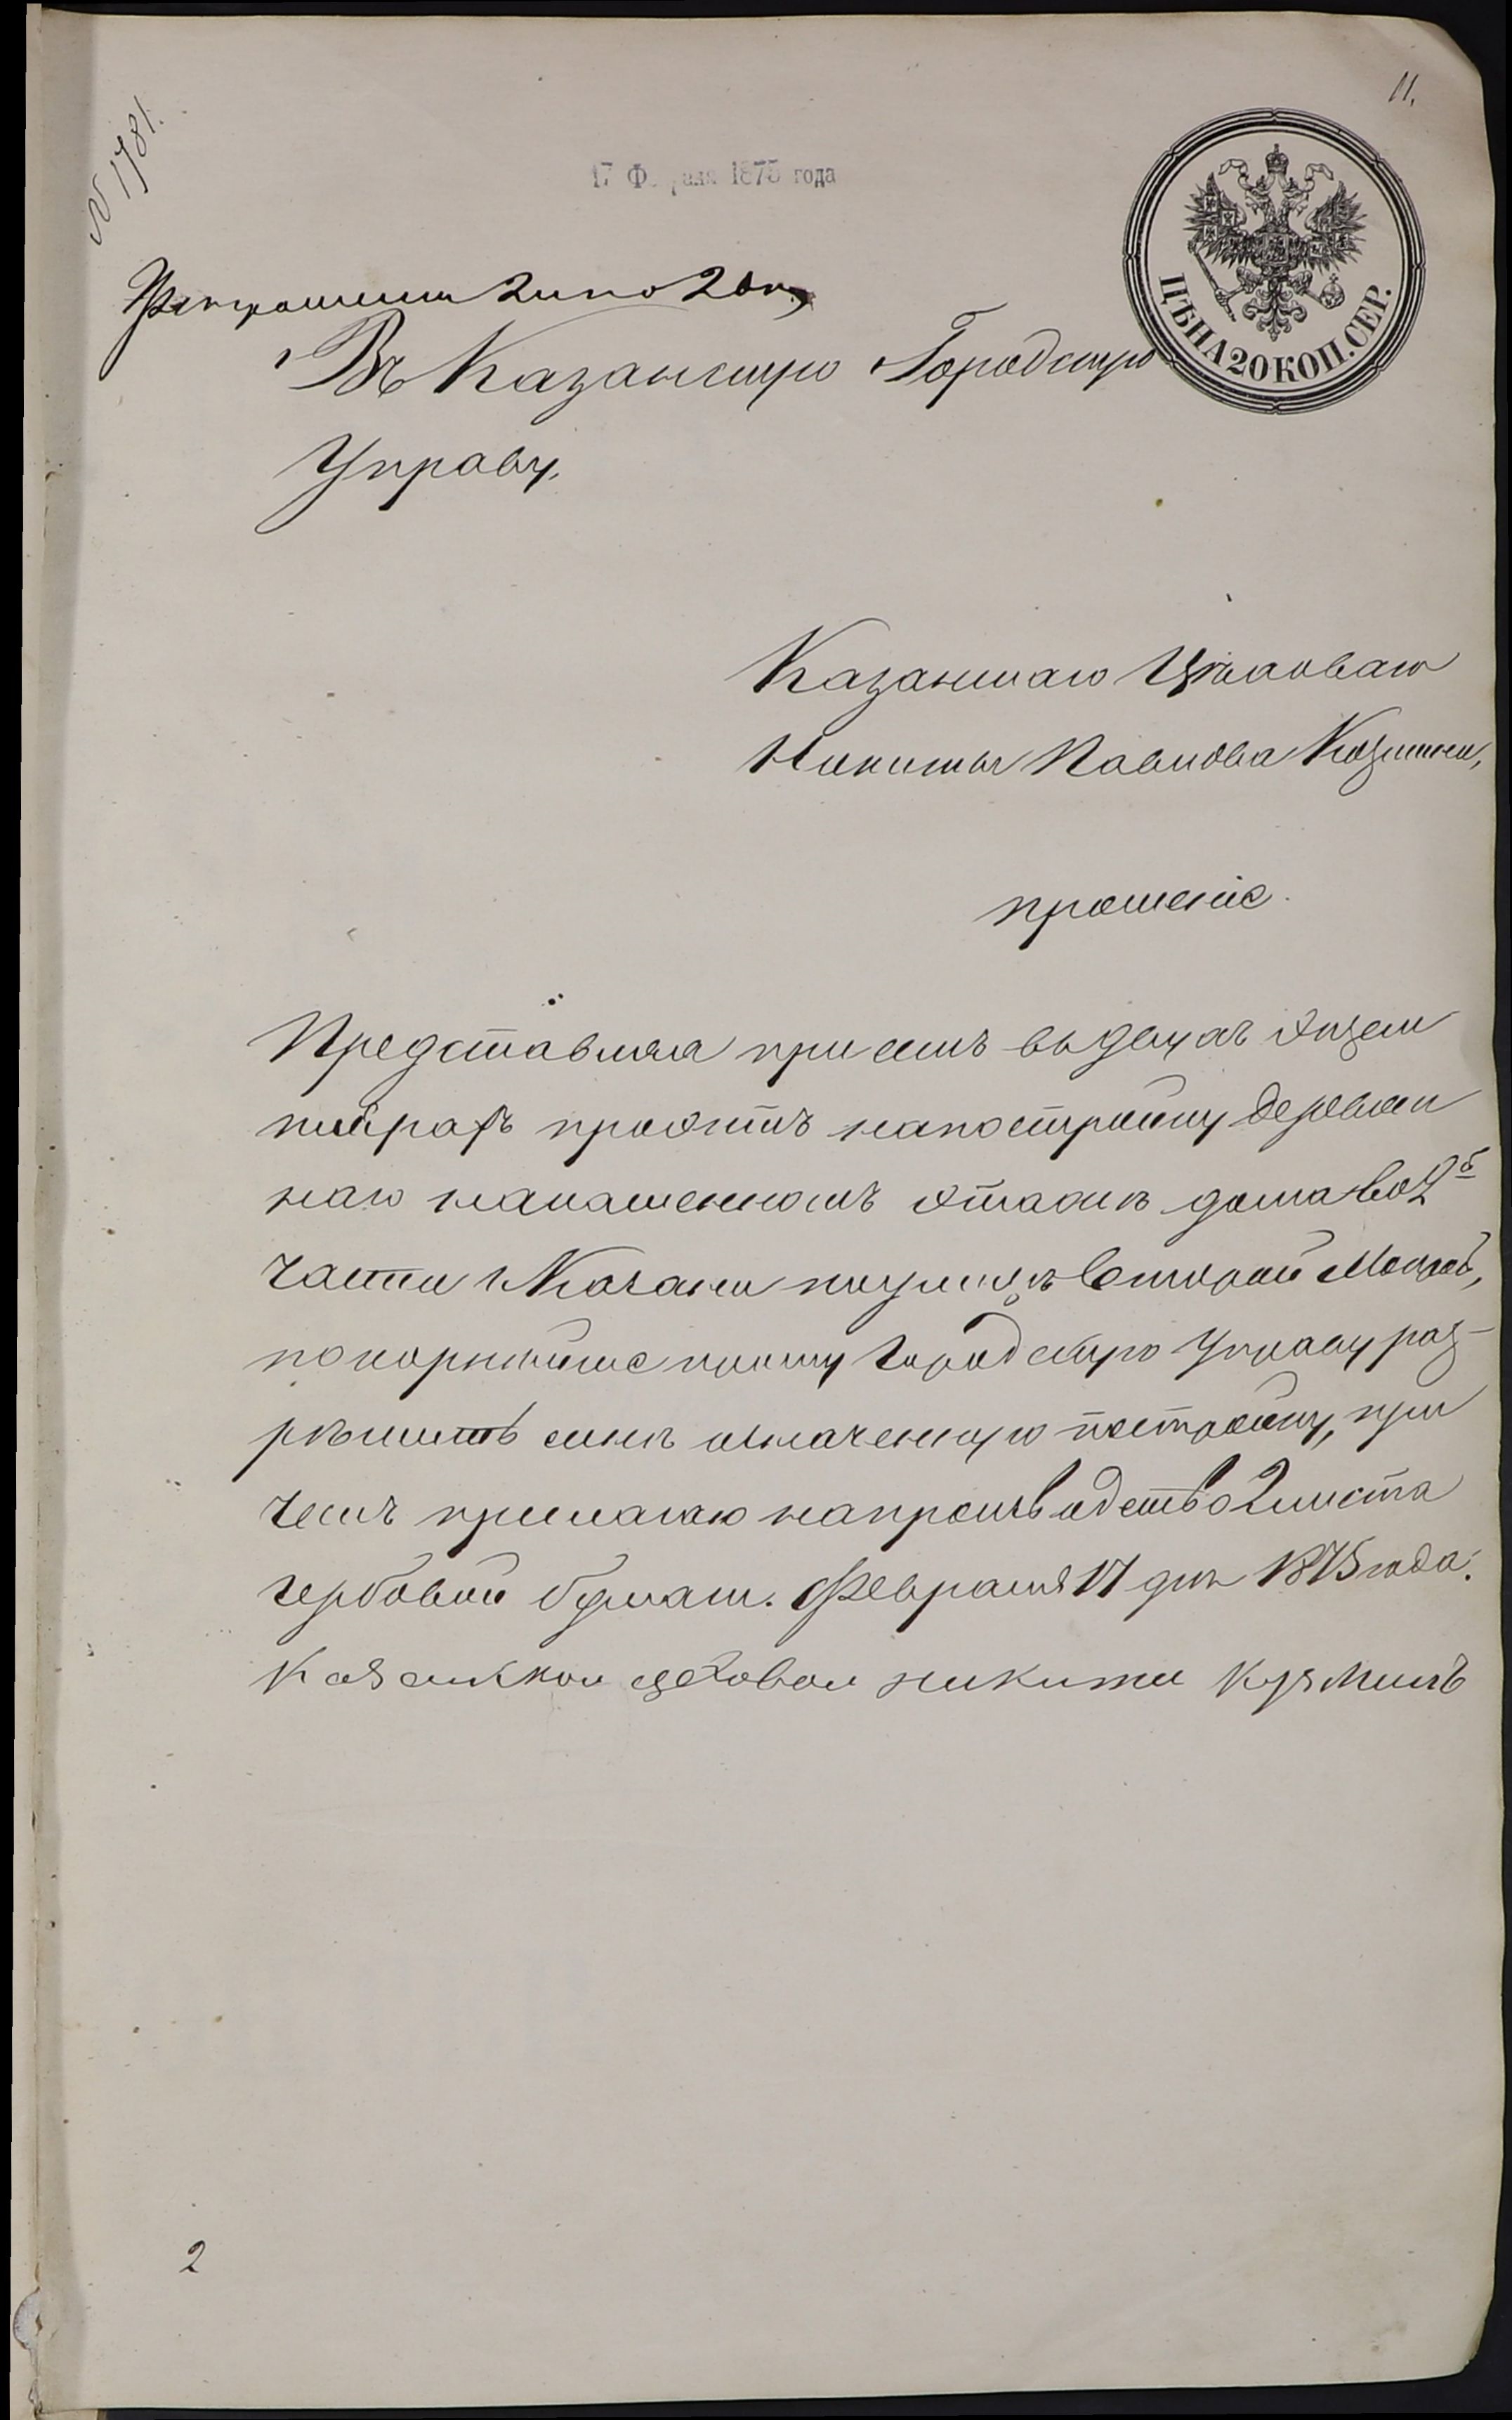 11.
№ 1781.
17 Февраля 1875 года
ЦѢНА 20 КОП. СЕР.
При прошении 2 л по 20 к
Въ Казанскую Городскую
Управу.
Казанскаго Цѣховаго
Никиты Павлова
прошеніе.
Представляя при семъ въ двухъ экзем
плярахъ проэктъ на постройку деревян
наго на каменномъ этаже дома во 2й
части г. Казани по улицѣ Второй Мокрой,
покорнѣйше прошу Городскую Управу раз-
рѣшить мнѣ означенную постройку, при
чемъ прилагаю на производство 2 листа
гербовой бумаги. Февраля 17 дня 1875 года.
Казанской цеховой никита Кузминъ
2